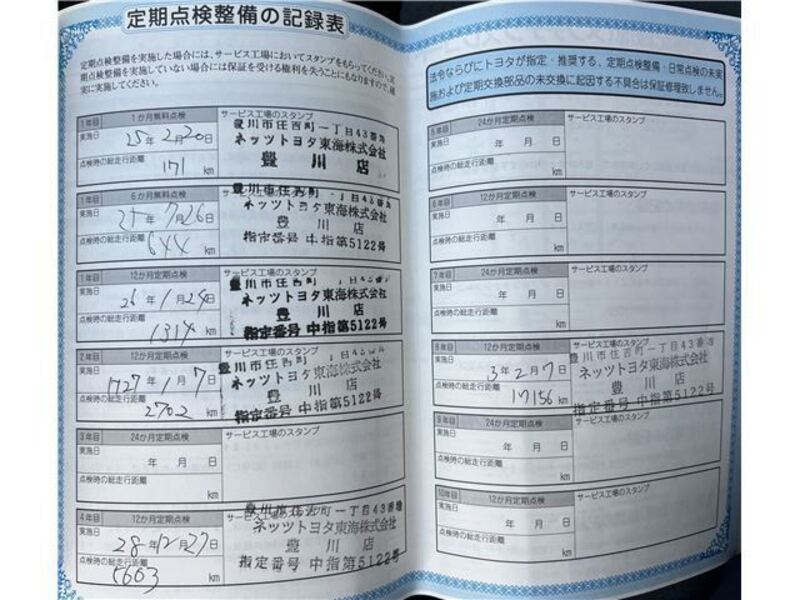 定期点検整備の記録表
定期点検整備を実施した場合には、サービス工場においてスタンプをもらってください。定
期点検整備を実施していない場合には保証を受ける権利を失うことにもなりますので、確
実に実施してください。
1年目 1か月無料点検 サービス工場のスタンプ
実施日 25年2月20日
点検時の総走行距離 171 km
豊川市住吉町一丁目43番地
ネッツトヨタ東海株式会社
豊川店
1年目 6か月無料点検 サービス工場のスタンプ
実施日 25年7月26日
点検時の総走行距離 644 km
豊川市住吉町一丁目43番地
ネッツトヨタ東海株式会社
豊川店
指定番号 中指第5122号
1年目 12か月定期点検 サービス工場のスタンプ
実施日 26年1月24日
点検時の総走行距離 1314 km
豊川市住吉町
ネッツトヨタ東海株式会社
豊川店
指定番号 中指第5122号
2年目 12か月定期点検 サービス工場のスタンプ
実施日 27年1月7日
点検時の総走行距離 2702 km
豊川市住吉町
ネッツトヨタ東海株式会社
豊川店
指定番号 中指第5122号
3年目 24か月定期点検 サービス工場のスタンプ
実施日 年 月 日
点検時の総走行距離 km
4年目 12か月定期点検 サービス工場のスタンプ
実施日 28年12月27日
点検時の総走行距離 5603 km
豊川市住吉町一丁目43番地
ネッツトヨタ東海株式会社
豊川店
指定番号 中指第5122号
法令ならびにトヨタが指定・推奨する、定期点検整備・日常点検の未実
施および定期交換部品の未交換に起因する不具合は保証修理致しません。
5年目 24か月定期点検 サービス工場のスタンプ
実施日 年 月 日
点検時の総走行距離 km
6年目 12か月定期点検 サービス工場のスタンプ
実施日 年 月 日
点検時の総走行距離 km
7年目 24か月定期点検 サービス工場のスタンプ
実施日 年 月 日
点検時の総走行距離 km
8年目 12か月定期点検 サービス工場のスタンプ
実施日 3年2月7日
点検時の総走行距離 17156 km
豊川市住吉町一丁目43番地
ネッツトヨタ東海株式会社
豊川店
指定番号 中指第5122号
9年目 24か月定期点検 サービス工場のスタンプ
実施日 年 月 日
点検時の総走行距離 km
10年目 12か月定期点検 サービス工場のスタンプ
実施日 年 月 日
点検時の総走行距離 km